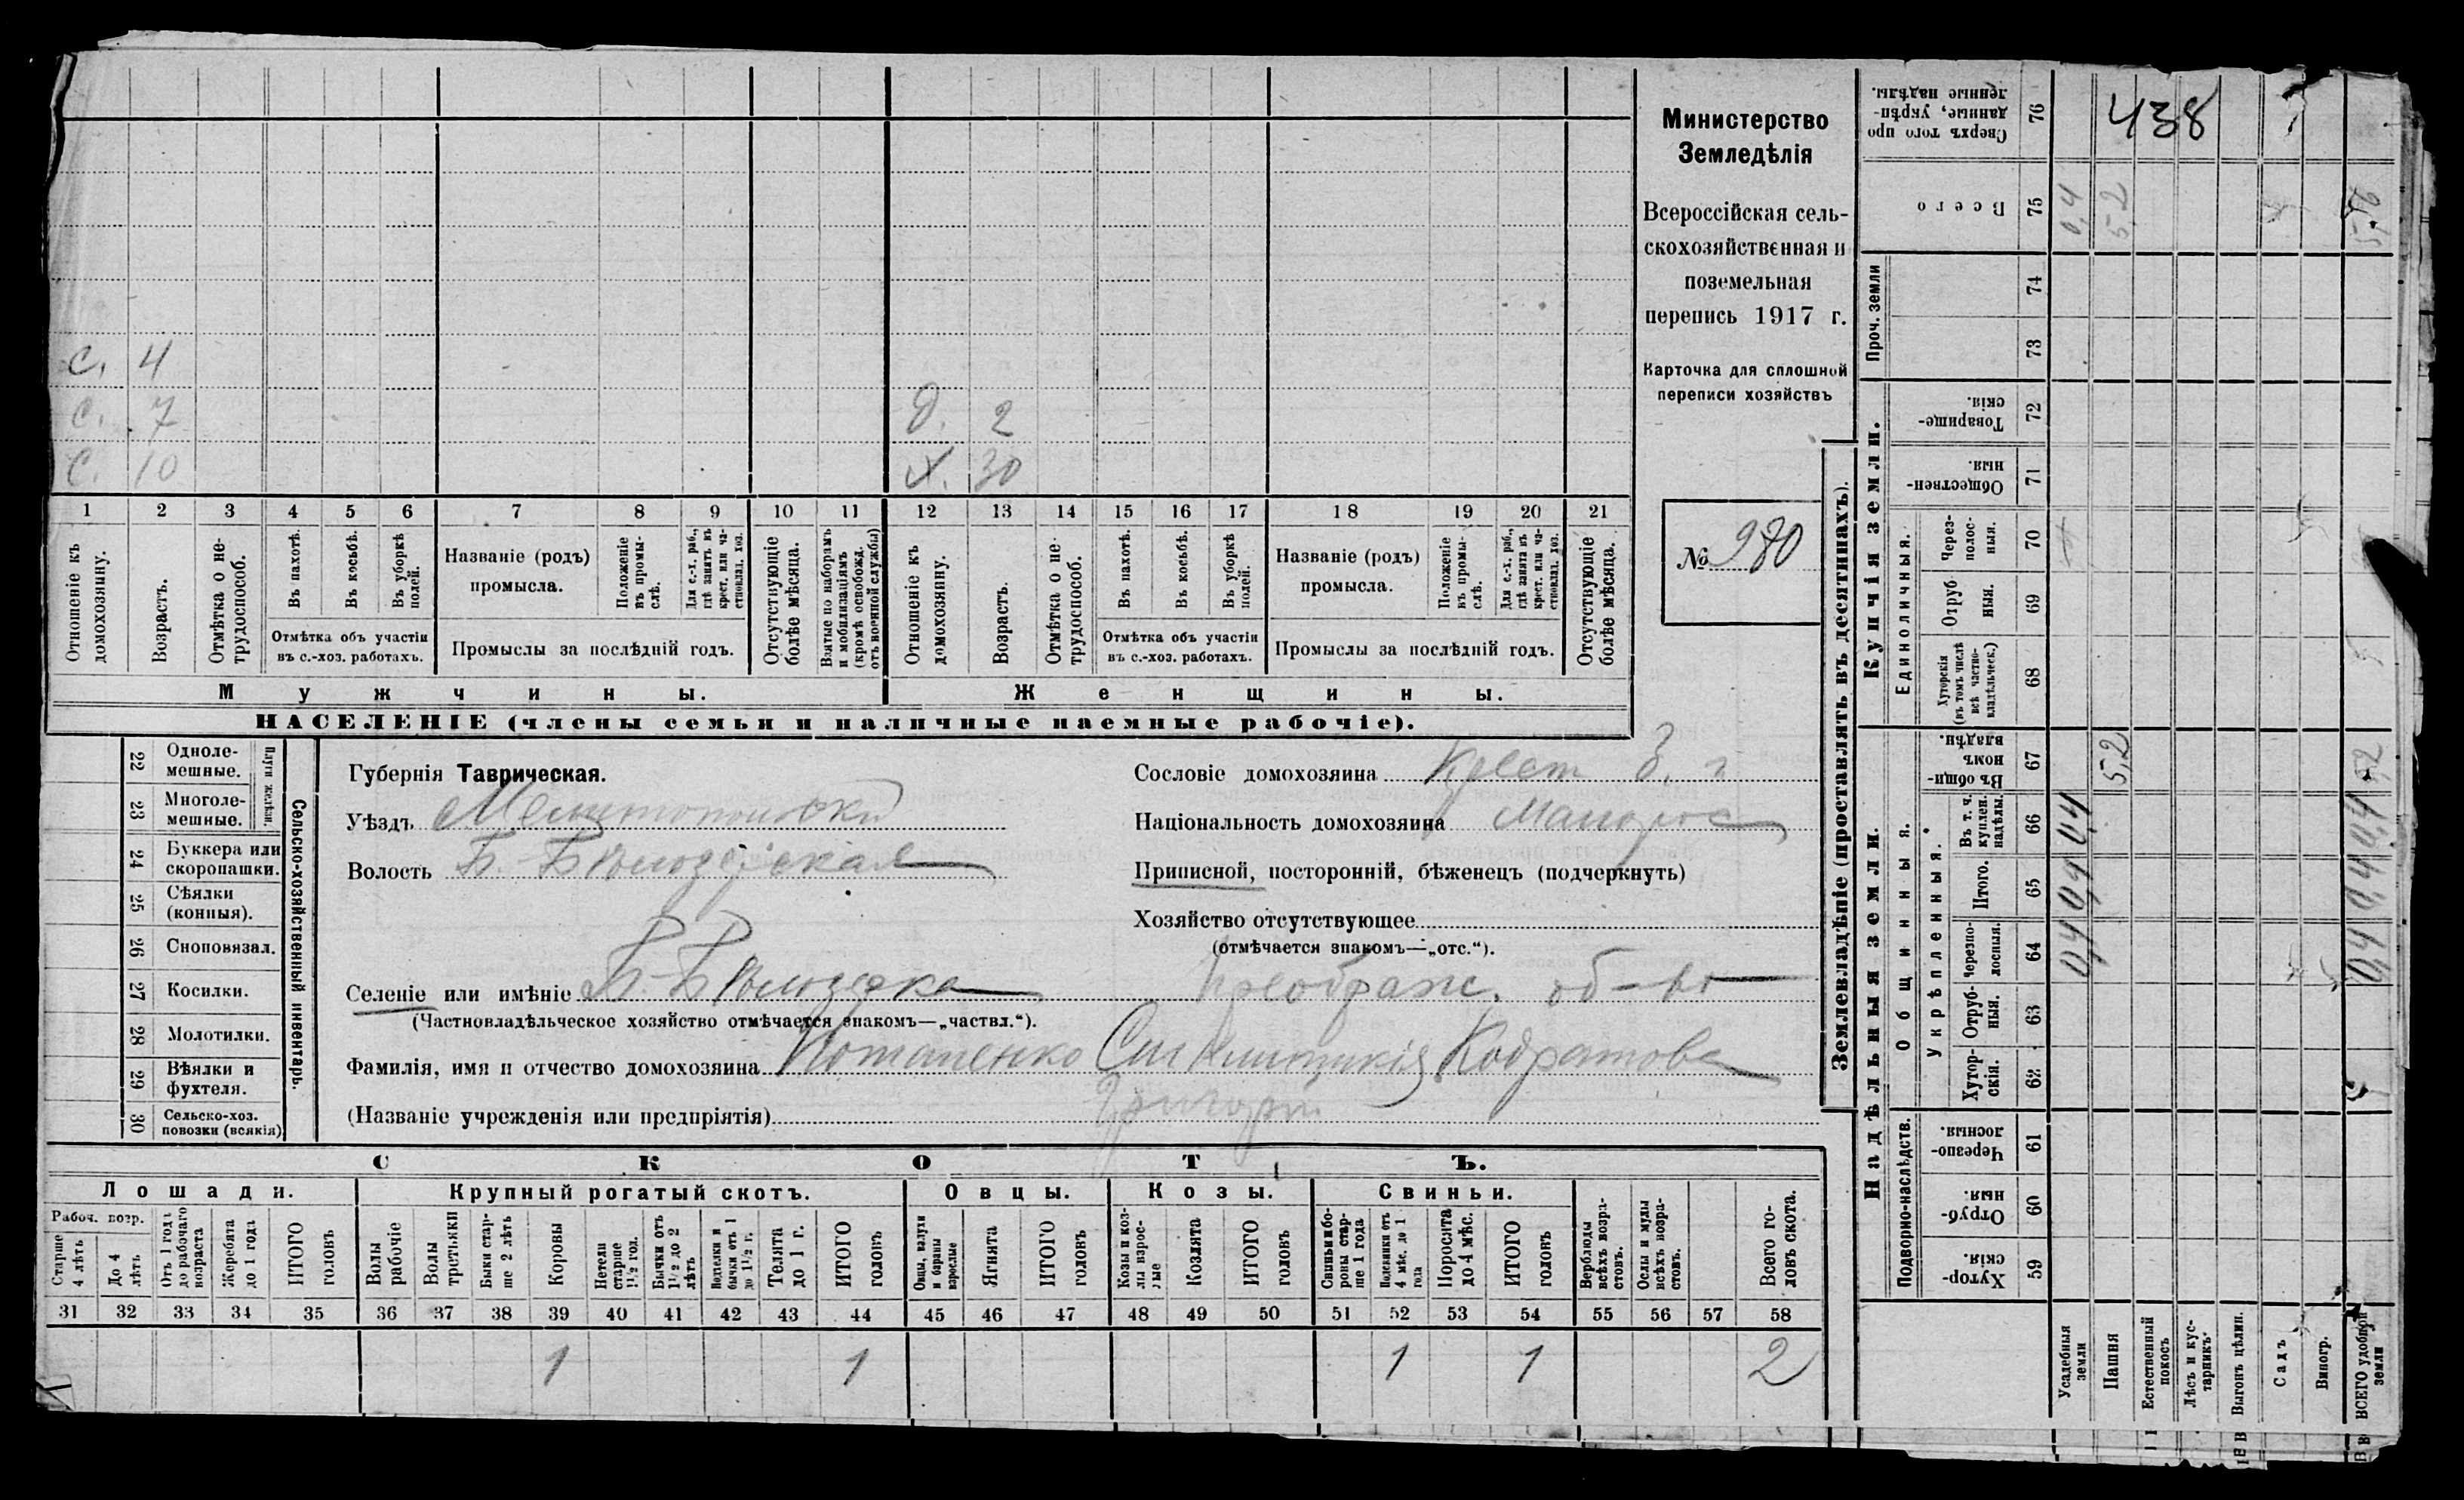 С. 4
С. 7 д. 2
С. 10 Х. 30
1 2 3 4 5 6 7 8 9 10 11 12 13 14 15 16 17 18 19 20 21
Отношеніе къ домохозяину.
Возрастъ.
Отмѣтка о нетрудоспособ.
Въ пахотѣ.
Въ косьбѣ.
Въ уборкѣ полей.
Отмѣтка объ участіи въ с.-хоз. работахъ.
Названіе (родъ) промысла.
Положеніе въ промыслѣ.
Для с.-х. раб., гдѣ занятъ въ крест. или частновлад. хоз.
Промыслы за послѣдній годъ.
Отсутствующіе болѣе мѣсяца.
Взятые по наборамъ и мобилизаціямъ (кромѣ освобожд. отъ военной службы)
Отношеніе къ домохозяину.
Возрастъ.
Отмѣтка о нетрудоспособ.
Въ пахотѣ.
Въ косьбѣ.
Въ уборкѣ полей.
Отмѣтка объ участіи въ с.-хоз. работахъ.
Названіе (родъ) промысла.
Положеніе въ промыслѣ.
Для с.-х. раб., гдѣ занята въ крест. или частновлад. хоз.
Промыслы за послѣдній годъ.
Отсутствующіе болѣе мѣсяца.
Мужчины. Женщины.
НАСЕЛЕНІЕ (члены семьи и наличные наемные рабочіе).
Министерство
Земледѣлія
Всероссійская сель-
скохозяйственная и
поземельная
перепись 1917 г.
Карточка для сплошной
переписи хозяйствъ
№ 980
22 Одноле-
мешные.
23 Многоле-
мешные.
Плуги желѣзн.
24 Буккера или
скоропашки.
25 Сѣялки
(конныя).
26 Сноповязал.
27 Косилки.
28 Молотилки.
29 Вѣялки и
фухтеля.
30 Сельско-хоз.
повозки (всякія)
Сельско-хозяйственный инвентарь.
Губернія Таврическая.
Уѣздъ Мелитопольскій
Волость Б.-Бѣлозерская
Селеніе или имѣніе Б.-Бѣлозерка Преображ. об-во
(Частновладѣльческое хозяйство отмѣчается знакомъ—„частвл.“).
Фамилія, имя и отчество домохозяина Потапенко Кодратова
(Названіе учрежденія или предпріятія) Григорій
Сословіе домохозяина Крест
Національность домохозяина Малорос
Приписной, посторонній, бѣженецъ (подчеркнуть)
Хозяйство отсутствующее
(отмѣчается знакомъ—„отс.“).
СКОТЪ.
Лошади. Крупный рогатый скотъ. Овцы. Козы. Свиньи.
Рабоч. возр.
Старше 4 лѣтъ
До 4 лѣтъ
Отъ 1 года до рабочаго возраста
Жеребята до 1 года
ИТОГО головъ
Волы рабочіе
Волы третьяки
Быки старше 2 лѣтъ
Коровы
Нетели старше 1½ год.
Бычки отъ 1½ до 2 лѣтъ
Водтелки и бычки отъ 1 до 1½ г.
Телята до 1 г.
ИТОГО головъ
Овцы, валухи и бараны взрослые
Ягнята
ИТОГО головъ
Козы и козлы взрослые
Козлята
ИТОГО головъ
Свиньи и боровы старше 1 года
Подсвинки отъ 4 мѣс. до 1 года
Поросята до 4 мѣс.
ИТОГО головъ
Верблюды всѣхъ возрастовъ.
Ослы и мулы всѣхъ возрастовъ.
Всего головъ скота.
31 32 33 34 35 36 37 38 39 40 41 42 43 44 45 46 47 48 49 50 51 52 53 54 55 56 57 58
1 1 1 1 2
Землевладѣніе (проставлять въ десятинахъ).
Надѣльныя земли. Купчія земли. Проч. земли
Подворно-наслѣдств.
Общинныя.
Укрѣпленныя.
Единоличныя.
Сверхъ того проданные, укрѣпленные надѣлы. 76 438
Всего 75 0,4 5,2
74
73
Товарищескія. 72
Общественныя 71
Черезполосныя. 70
Отрубныя. 69
Хуторскія (въ томъ числѣ всѣ частновладѣльческ.) 68
Въ общинномъ владѣн. 67 5,2
Въ т. ч. куплен. надѣлы. 66 0,4 0,4
Итого. 65 0,4 0,4
Черезполосныя. 64 0,4 0,4
Отрубныя. 63
Хуторскія. 62
Черезполосныя. 61
Отрубныя. 60
Хуторскія. 59
Усадебныя земли
Пашня
Естественный покосъ
Лѣсъ и кустарникъ
Выгонъ цѣлин.
Садъ
Виногр.
ВСЕГО удобной земли